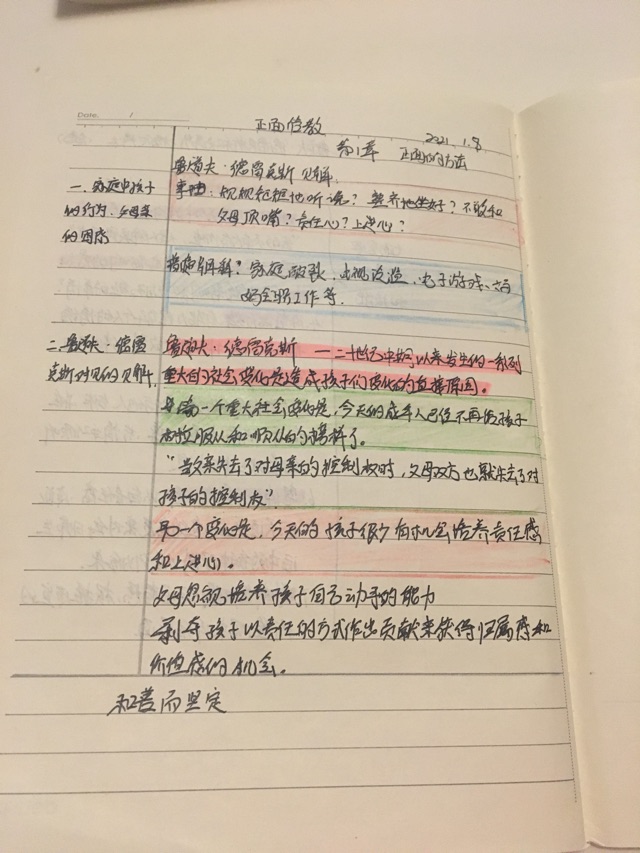 Date. /
正面管教
2021.1.8
第1章 正面的方法
鲁道夫·德雷克斯 见解
一、家庭中孩子
的行为、父母亲
的困惑
事由：规规矩矩地听课？整齐地坐好？不敢和
父母顶嘴？责任心？上进心？
家庭破裂、电视泛滥、电子游戏、
妈全职工作等.
二、鲁道夫·德雷
克斯 的见解.
鲁道夫·德雷克斯 — 二十世纪中期以来发生的一系列
重大的社会变化是造成孩子们变化的直接原因。
一个重大社会变化是，今天的成年人已经不再给孩子
树立服从和顺从的榜样了。
“当父亲失去了对母亲的控制权时，父母双方也就失去了对
孩子的控制权”
另一个变化是，今天的孩子很少有机会培养责任感
和上进心。
父母忽视培养孩子自己动手的能力
剥夺孩子以责任的方式作出贡献来获得归属感和
价值感的机会。
和善而坚定